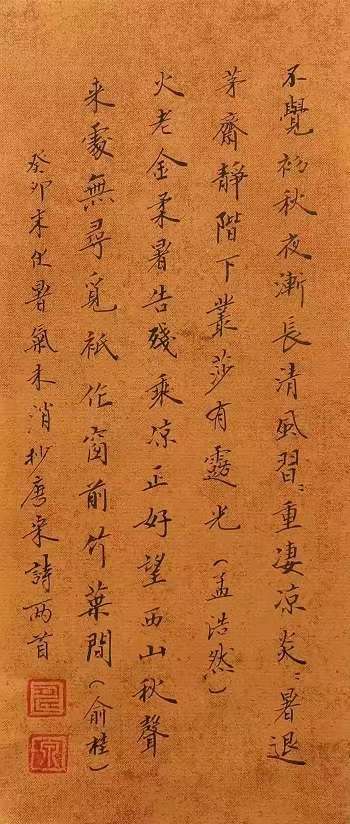 不覺初秋夜漸長清風習〻重凄凉炎〻暑退
茅齋靜階下叢莎有露光（孟浩然）
火老金柔暑告殘乘凉正好望西山秋聲
来處無尋覓祇在窗前竹葉間（俞桂）
癸卯末伏暑氣未消抄唐宋詩兩首